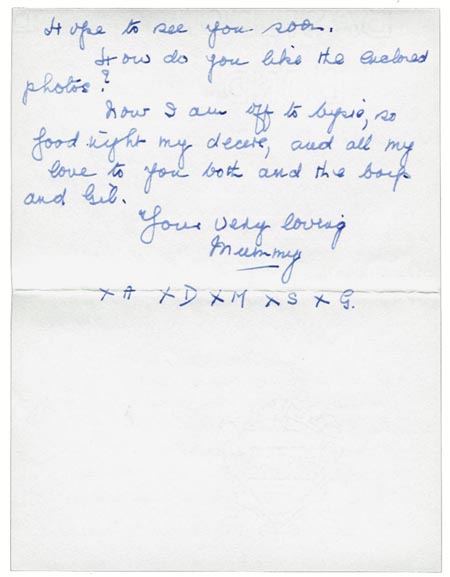 Hope to see you soon.
How do you like the enclosed
photos?
Now I am off to bysie, so
good night my deare, and all my
love to you both and the boys
and Gil.
Your very loving
Mummy
x A x D x M x S x G.